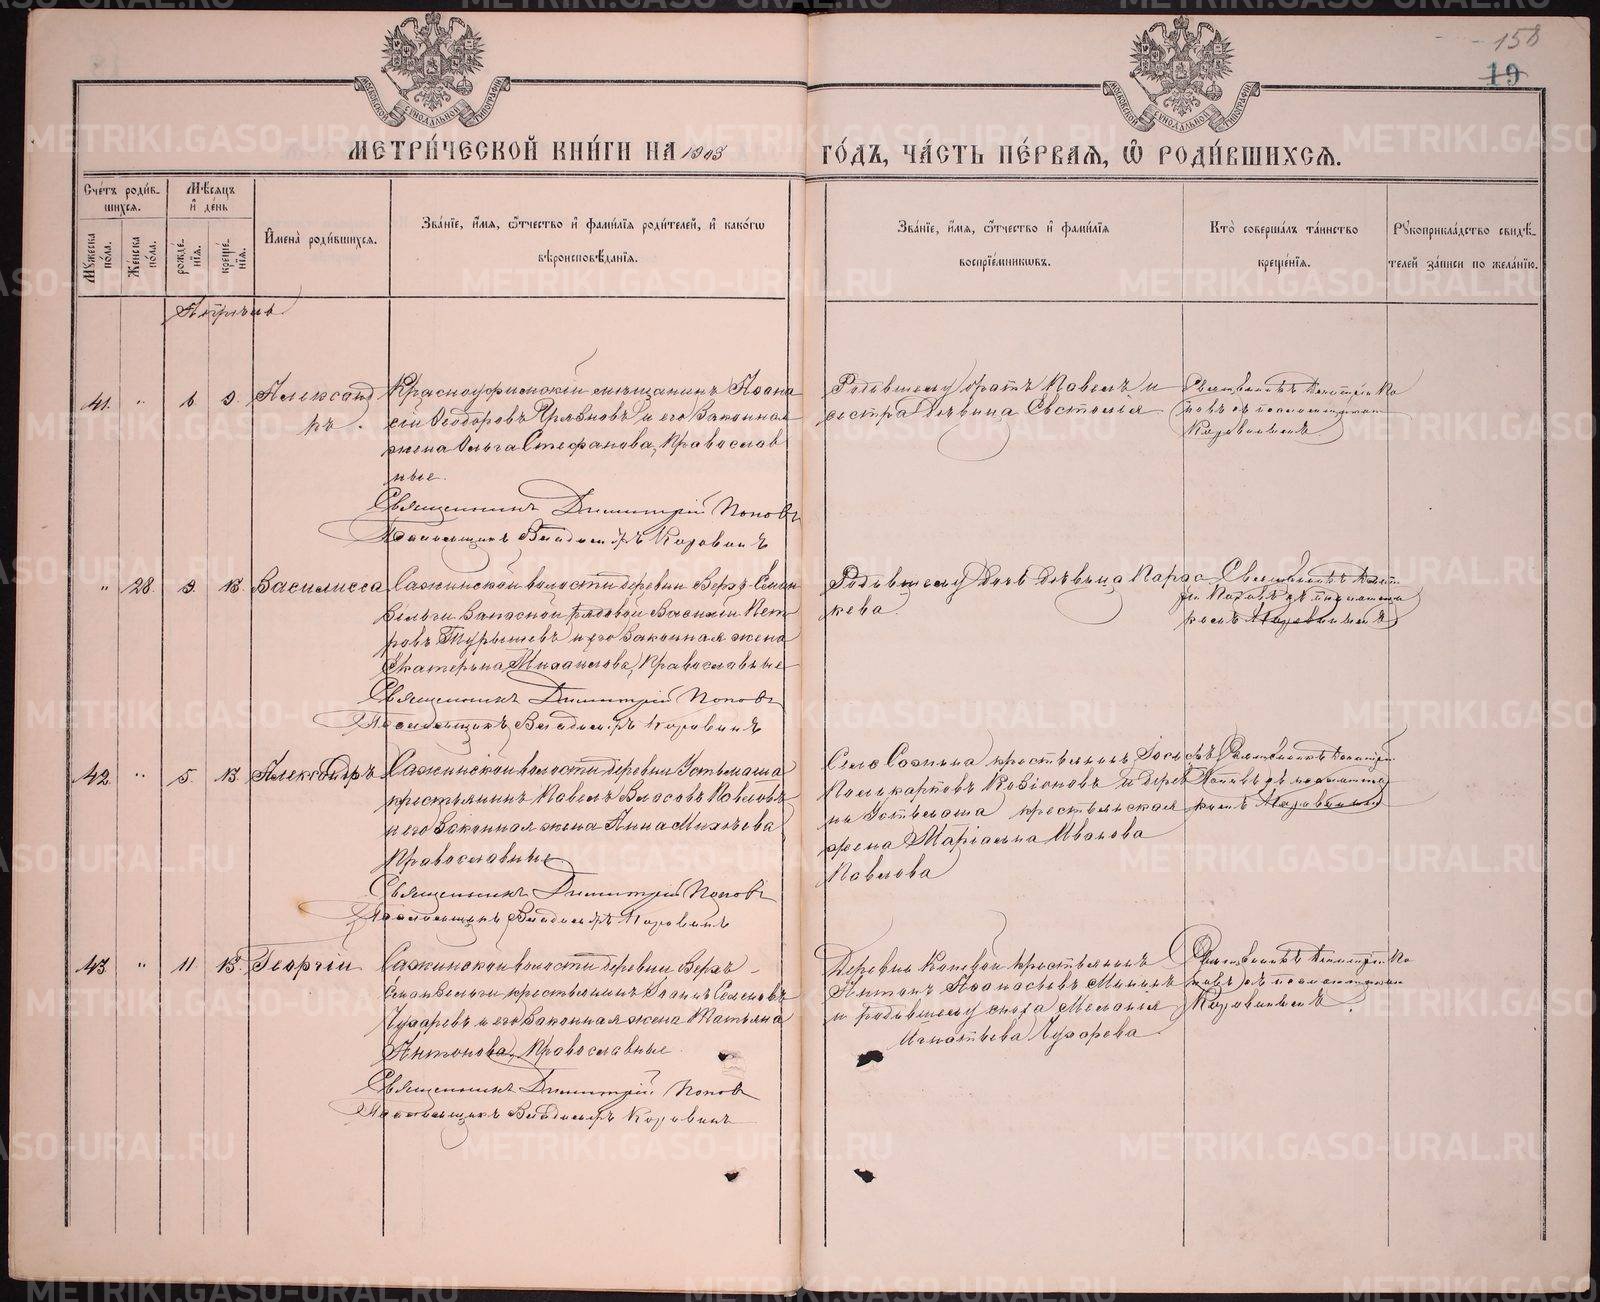 150
19
МЕТРИ́ЧЕСКОЙ КНИ́ГИ НА 1903 ГО́ДЪ, ЧА́СТЬ ПЕ́РВАЯ, Ѡ РОДИ́ВШИХСЯ.
Сче́тъ роди́в-
шихся.
Мѣ́сяцъ
и҆ де́нь
Му́жеска
по́ла.
Же́нска
по́ла.
рожде́-
нїя.
креще́-
нїя.
И҆мена̀ роди́вшихся.
Зва́нїе, и҆́мя, ѻ҆́тчество и҆ фами́лїя роди́телей, и҆ како́гѡ
вѣроисповѣ́данїя.
Зва́нїе, и҆́мя, ѻ҆́тчество и҆ фами́лїя
воспрїе́мникѡвъ.
Кто̀ соверша́лъ та́инство
креще́нїя.
Рꙋкоприкла́дство свидѣ́-
телей за́писи по жела́нїю.
41. " 9. Александ
ръ.
Красноуфимскій мѣщанинъ Афана
сій Ѳеодоровъ и его законная
жена Ольга Стефанова, православ
ные.
Священникъ Димитрій Поповъ
Псаломщикъ Владиміръ Коровинъ
Родившему братъ Павелъ и
сестра дѣвица
Священникъ Димитрій По
повъ съ псаломщикомъ
Коровинымъ
" 28. 9. 13. Василисса
Сажинской волости деревни Верхъ-
запасной рядовой Василій Пет
ровъ и его законная жена
Екатерина Михаилова, православные
Священникъ Димитрій Поповъ
Псаломщикъ Владиміръ Коровинъ
Родившему дочь дѣвица Парас
кева
Священникъ Димит
рій Поповъ съ псаломщи
комъ Коровинымъ
42. " 5. 13. Александръ
Сажинской волости деревни Устьмаша
крестьянинъ Павелъ Власовъ Павловъ
и его законная жена Анна Михеева
Православные
Священникъ Димитрій Поповъ
Псаломщикъ Владиміръ Коровинъ
Села Сажина крестьянинъ Іосифъ
Поликарповъ и дерев
ни Устьмаша крестьянская
жена Маріамна Иванова
Павлова
Священникъ Димитрій
Поповъ съ псаломщи
комъ Коровинымъ
43. " 11. 13. Георгій
Сажинской волости деревни Верхъ-
крестьянинъ Іоаннъ Семеновъ
Чухаревъ и его законная жена Татьяна
Антонова, православные
Священникъ Димитрій Поповъ
Псаломщикъ Владиміръ Коровинъ
Деревни крестьянинъ
Антонъ Афанасьевъ
и родившему сноха Меланія
Игнатьева Чухарева
Священникъ Димитрій По
повъ съ псаломщикомъ
Коровинымъ
METRIKI.GASO-URAL.RU